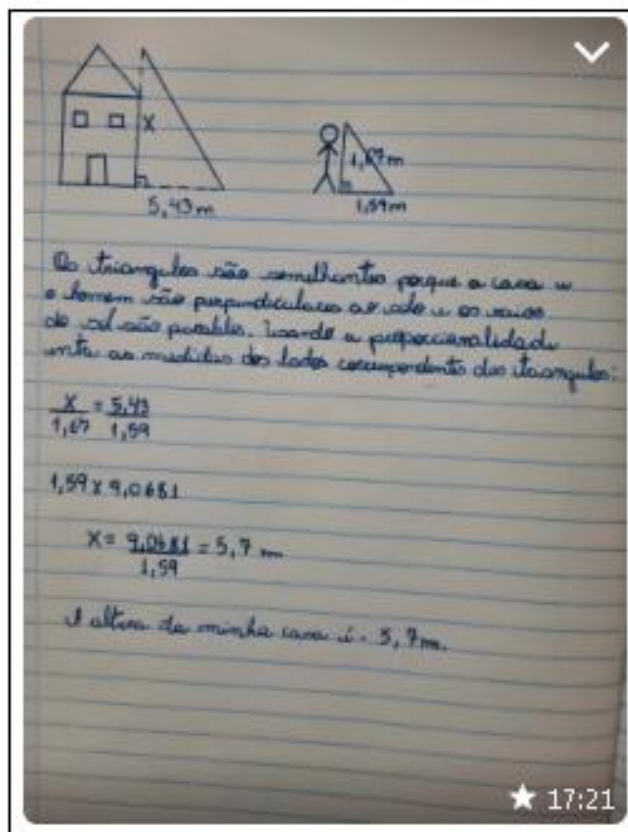 x
5,43 m
1,67 m
1,59 m
Os triangulos são semelhantes porque a casa e
o homem são perpendiculares ao solo e os raios
do sol são paralelos. Usando a proporcionalidade
entre as medidas dos lados correspondentes dos triangulos:
x = 5,43
1,67 1,59
1,59 x 9,0681
x = 9,0681 = 5,7 m
1,59
A altura da minha casa é: 5,7m.
17:21